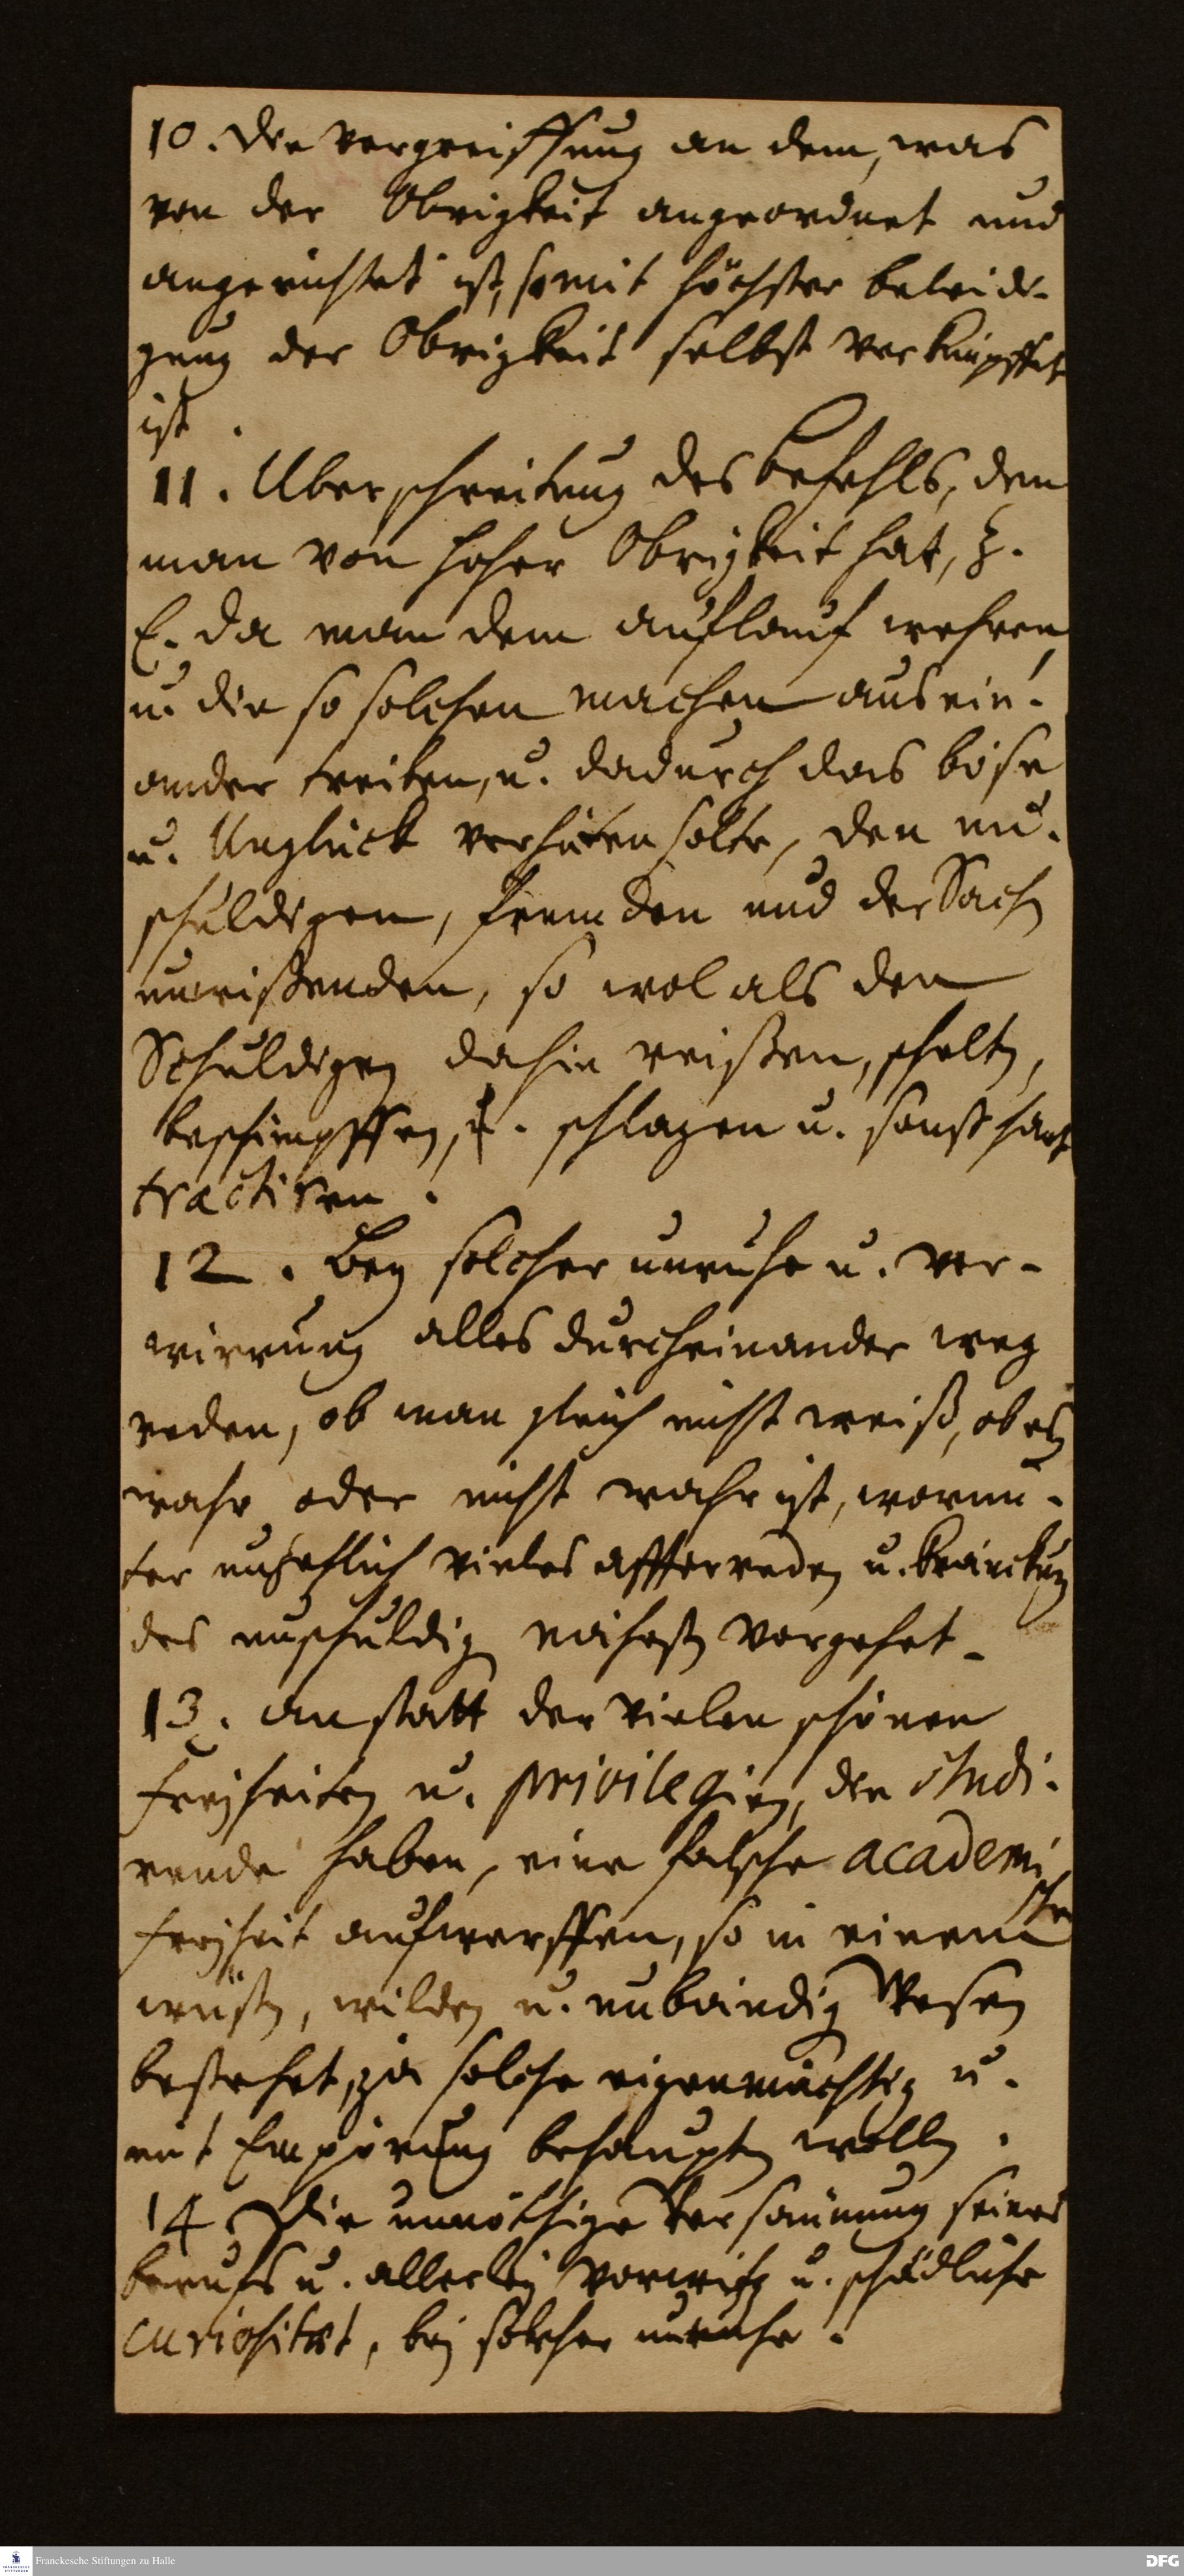 10. Die vergreiffung an dem, was
von der Obrigkeit angeordnet und
angerichtet ist, so mit höchster beleidi-
gung der Obrigkeit selbst verknüpffet
ist.
11. Überschreitung des befehls, den
man von hoher Obrigkeit hat, z.
E. da man dem auflauf wehren,
u. die so solchen machen ausein-
ander treiben, u. dadurch das böse
u. Unglück verhüten solte, den un-
schuldigen, frembden und der Sach
unwißenden, so wol als den
Schuldigen dahin reißen, schelten,
beschimpffen, schlagen u. sonst hart
tractiren.
12. Bey solcher unruhe u. ver-
wirrung alles durcheinander weg
reden, ob man gleich nicht weiß, ob es
wahr oder nicht wahr ist, worun-
ter unzehlich vieles affterreden u. kränckung
des unschuldigen nähesten vorgehet.
13. anstatt der vielen schönen
freyheiten u. privilegien, die studi-
rende haben, eine falsche academi
sche
freyheit aufwerffen, so in einem
wüsten, wilden u. unbändigen Wesen
bestehet, ja solche eigenmächtig u.
mit Empörung behaupten wollen.
14. Die unnöthige Versäumung seines
berufs u. allerley vorwitz u. schädliche
curiositæt, bey solcher unruhe.
Franckesche Stiftungen zu Halle
DFG